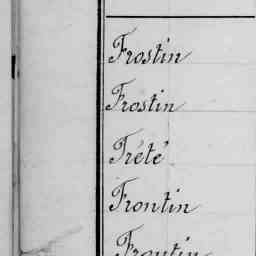 Frostin
Frostin
Trété
Frontin
Frontin